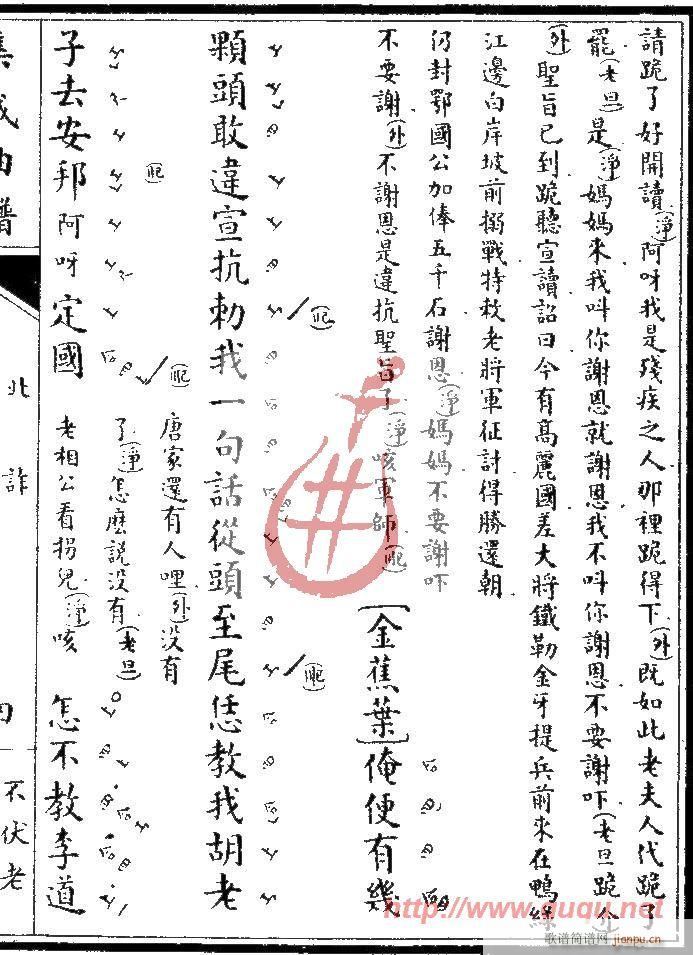 請跪了好開讀(淨)阿呀我是殘疾之人那裡跪得下(外)既如此老夫人代跪了
罷(老旦)是(淨)媽媽來我叫你謝恩就謝恩我不叫你謝恩不要謝吓(老旦跪介)
(外)聖旨已到跪聽宣讀詔曰今有高麗國差大將鐵勒金牙提兵前來在鴨綠
江邊白岸坡前搦戰特赦老將軍征討得勝還朝
仍封鄂國公加俸五千石謝恩(淨)媽媽不要謝吓
不要謝(外)不謝恩是違抗聖旨了(淨)咳軍師
[金蕉葉]俺便有幾
顆頭敢違宣抗勅我一句話從頭至尾恁教我胡老
唐家還有人哩(外)没有
了(淨)怎麽説没有(老旦)
老相公看拐兒(淨)咳
子去安邦阿呀定國
怎不教李道
集成曲譜
北詐
不伏老
http://www.ququ.net
歌谱简谱网 jianpu.cn